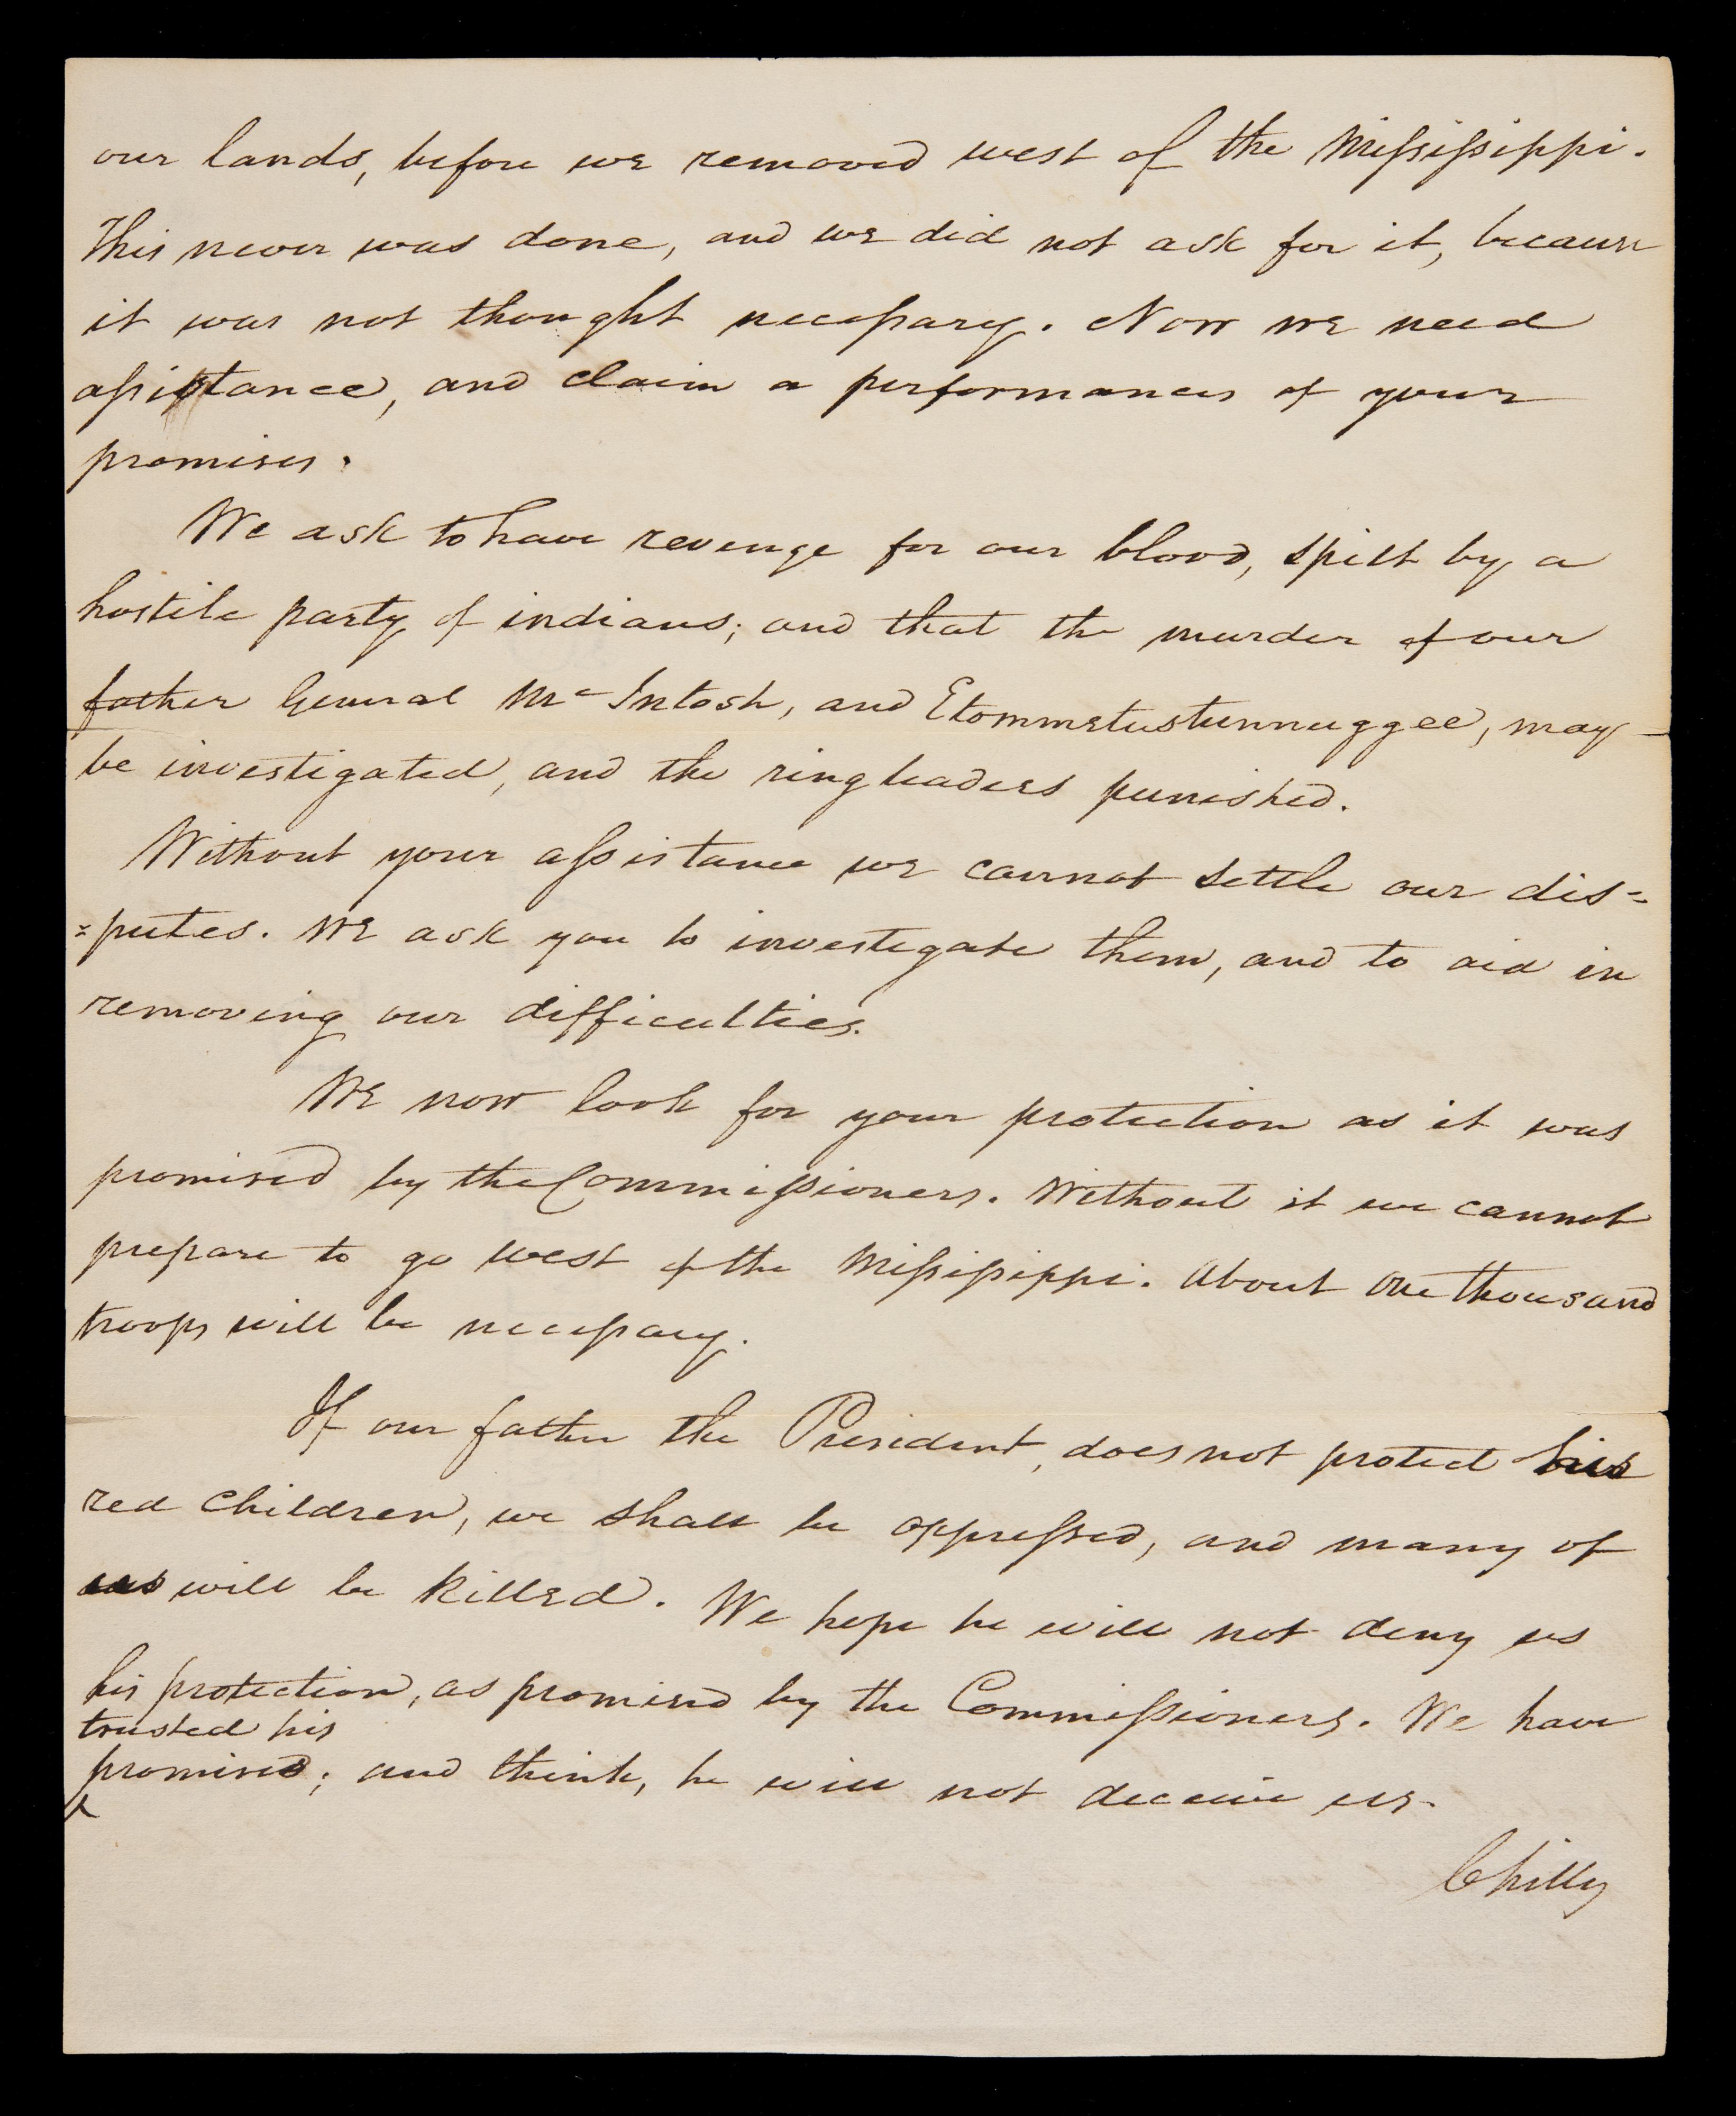 our lands, before we removed west of the Mississippi.
This never was done, and we did not ask for it, because
it was not thought necessary. Now we need
assistance, and claim a performances of your
promises.
We ask to have revenge for our blood, spilt by a
hostile party of indians; and that the murder of our
father General McIntosh, and Etommetustunnuggee, may
be investigated, and the ringleaders punished.
Without your assistance we cannot settle our dis=
=putes. We ask you to investigate them, and to aid in
removing our difficulties.
We now look for your protection as it was
promised by the Commissioners. Without it we cannot
prepare to go west of the Mississippi. About one thousand
troops will be necessary.
If our father the President, does not protect his
red children, we shall be oppressed, and many of
us will be killed. We hope he will not deny us
his protection, as promised by the Commissioners. We have
trusted his
promises; and think, he will not deceive us.
Chilly